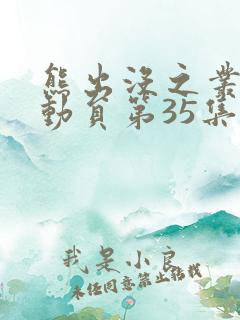 熊出没之叢
動員第35集
我是小良
未经同意禁止搬载